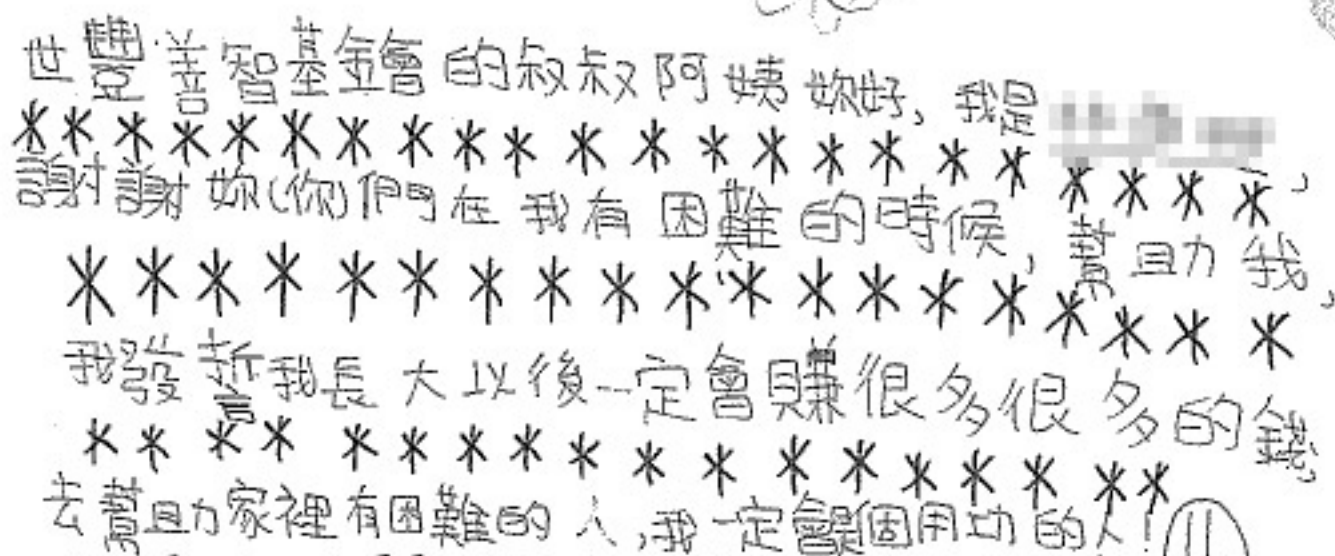 世豐善智基金會的叔叔阿姨妳好,我是
謝謝妳(你)們在我有困難的時候,贊助我,
我發誓我長大以後一定會賺很多很多的錢,
去贊助家裡有困難的人,我一定會是個用功的人!